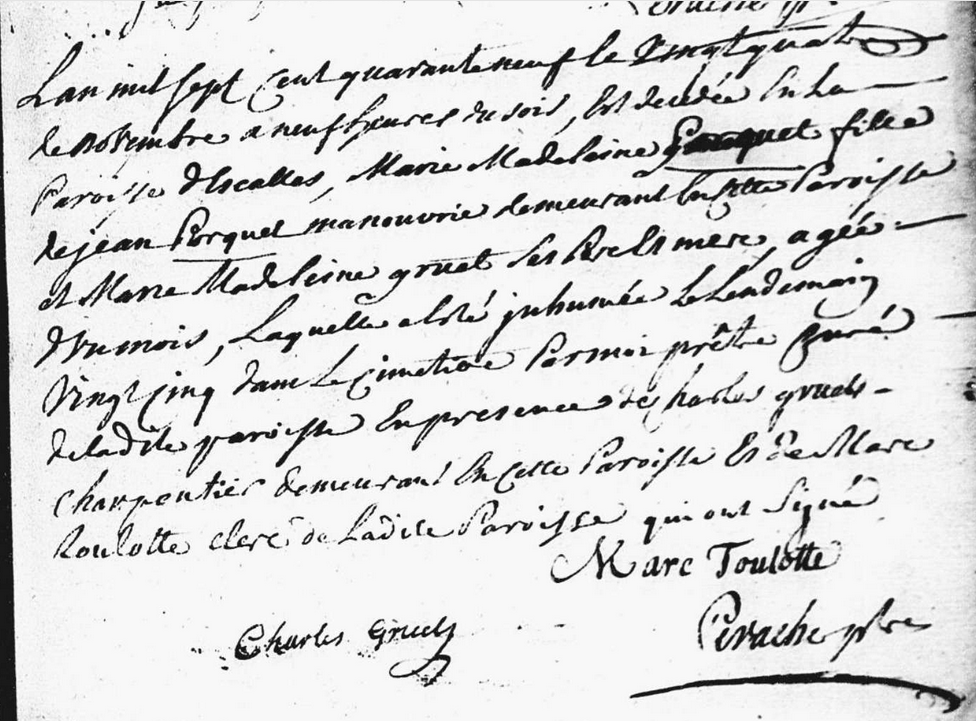 Perache ptre
L'an mil sept cent quarante neuf le vingt quatre
de novembre a neuf heures du soir, Est decedée En La
Paroisse d'Escalles, Marie Madeleine fille
de jean Porquet manouvrie demeurant En cette Paroisse
et Marie Madeleine gruet ses Pere Et mere, agée
d'un mois, Laquelle a Esté jnhumée Le Lendemain
vingt cinq dans Le cimetiere Par moi prêtre curé
de ladite paroisse En presence de charles gruets
charpentier demeurant En cette Paroisse Et de Marc
toulotte clerc de Ladite Paroisse qui ont signé
Marc Toulotte
Charles Gruets
Perache ptre